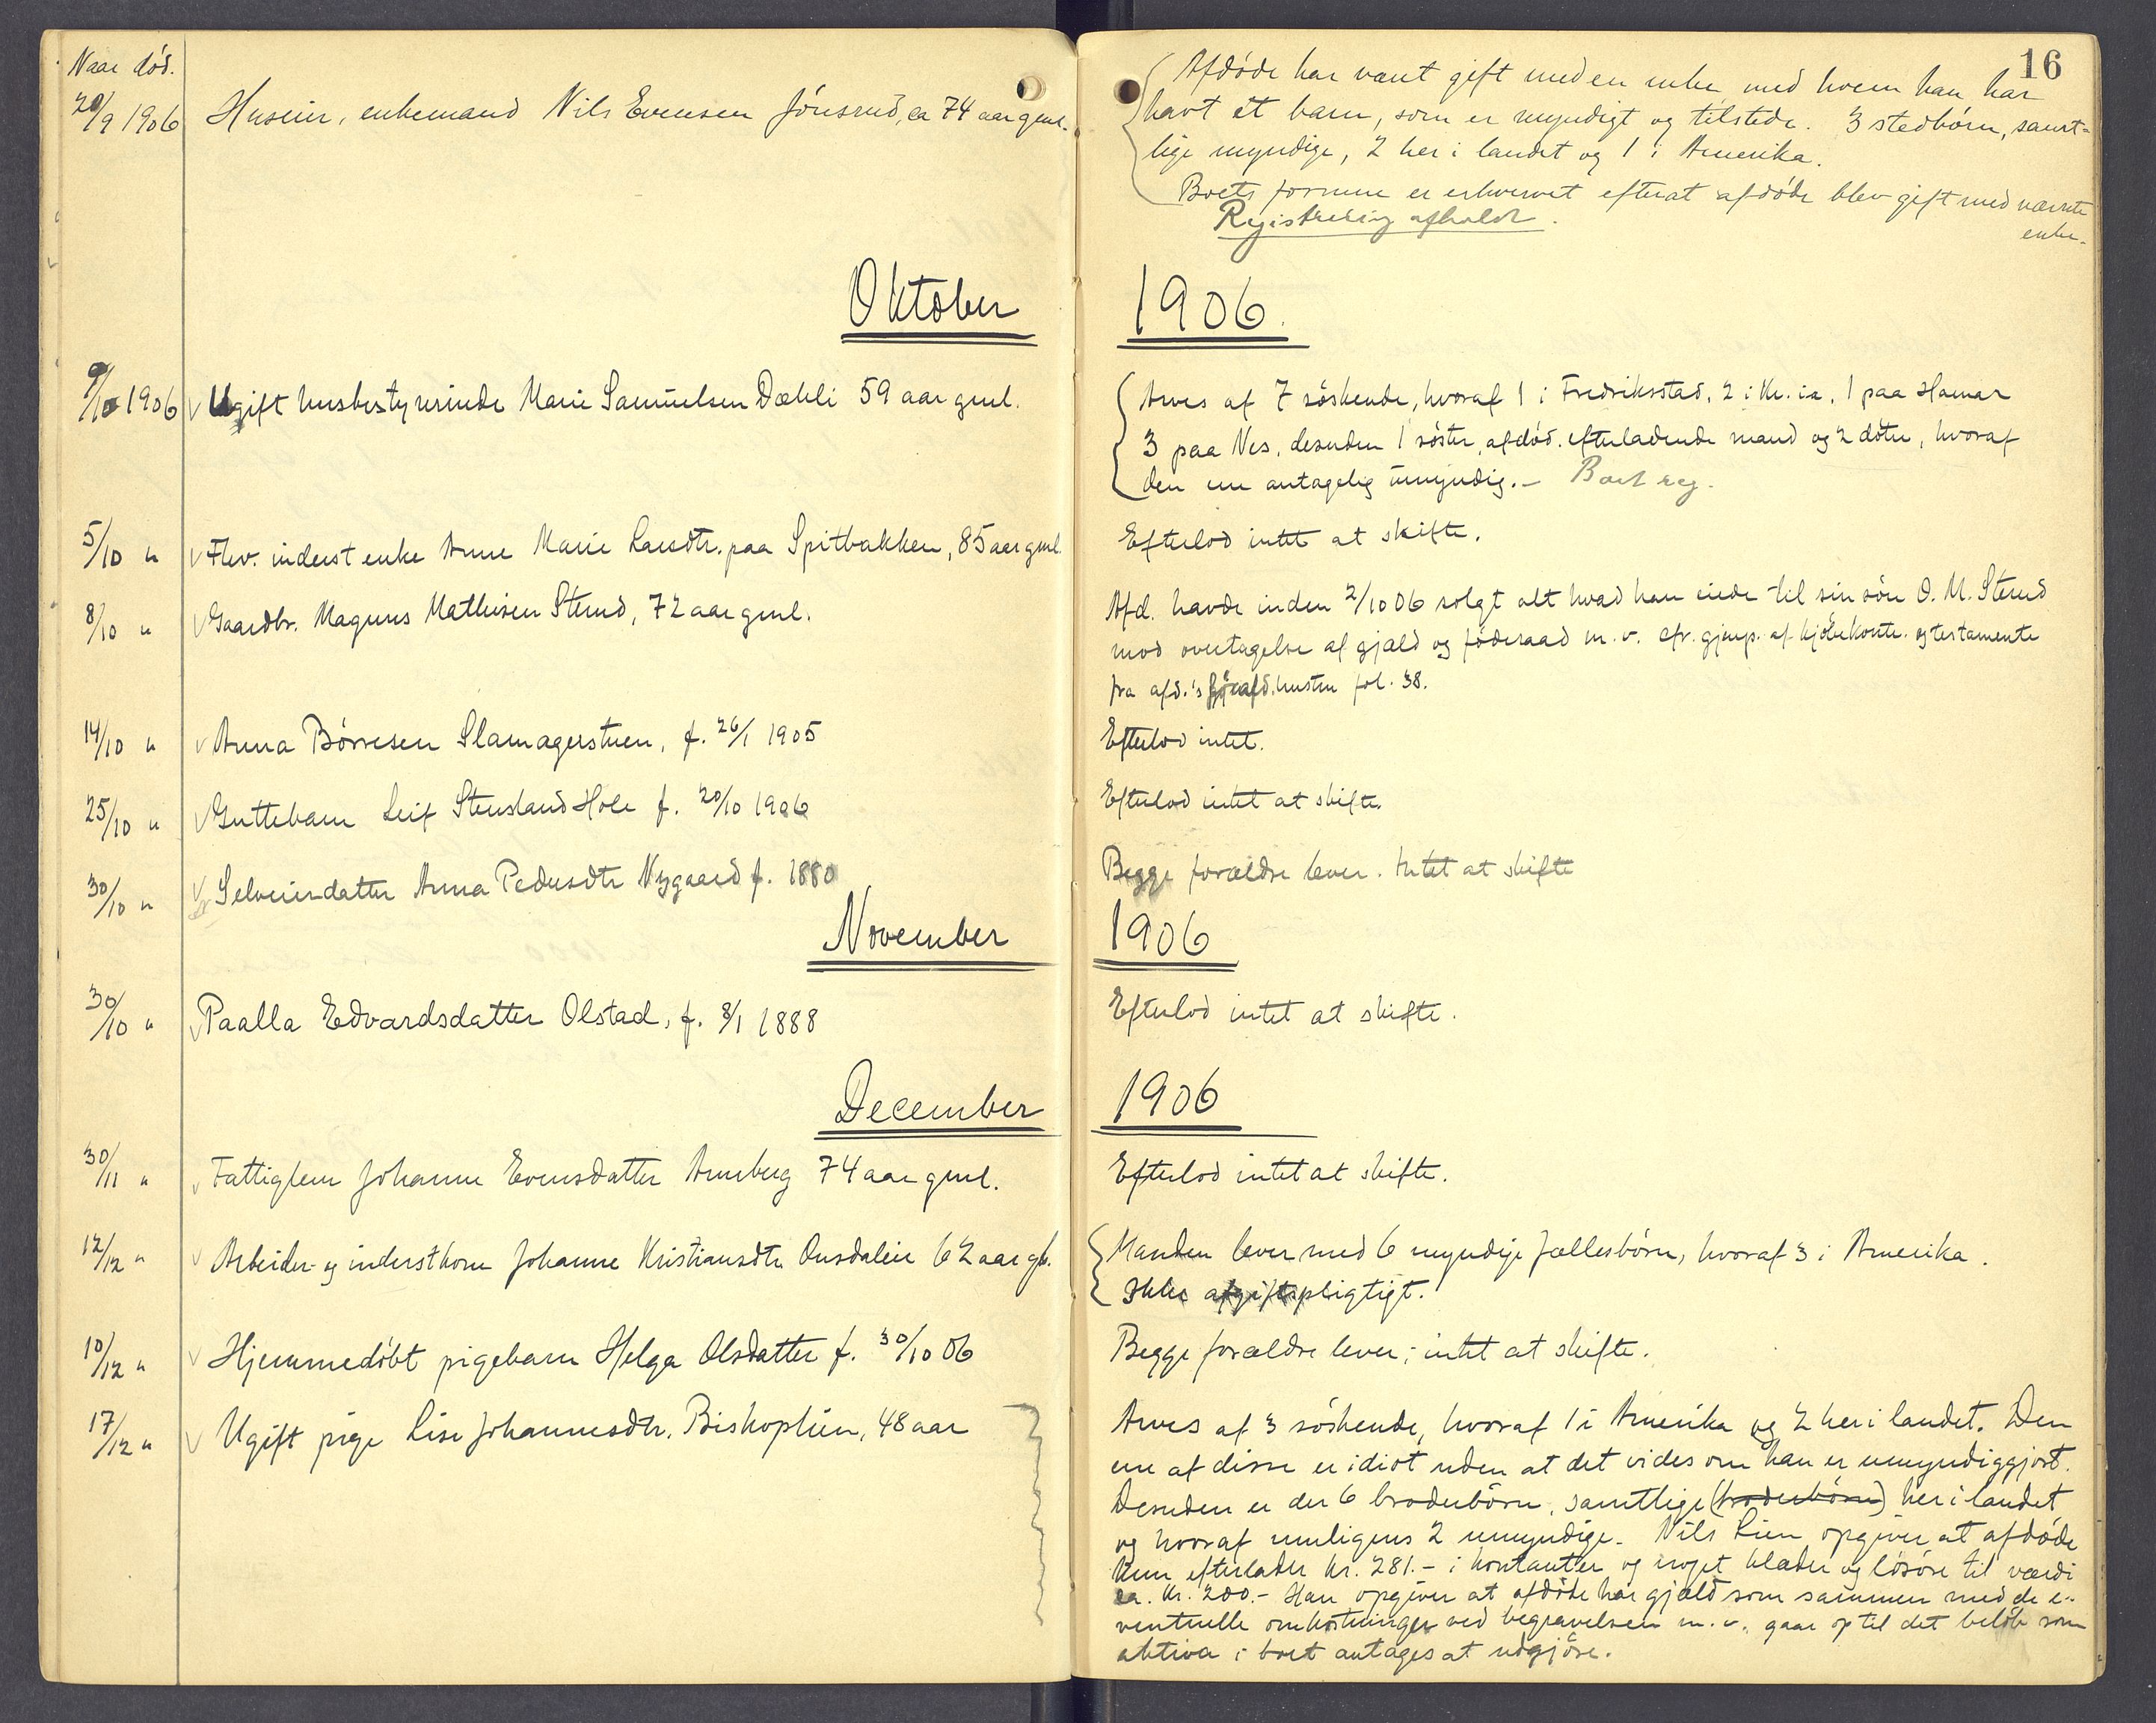 Naar död.
20/9 1906 Huseier, enkemand Nils Evensen Jönsrud, ca 74 aar gml.
Oktober
9/10 1906 Ugift husbestyrerinde Marie Samuelsen Dæhli 59 aar gml.
5/10 " Flev. inderst enke Anne Marie Larsdtr. paa Spitbakken, 85 aar gml.
8/10 " Gaardbr. Magnus Mathisen Sterud, 72 aar gml.
14/10 " Anna Börresen Slamagerstuen, f. 26/1 1905
25/10 " Guttebarn Leif Stensland Hole f. 20/10 1906
30/10 " Selveierdatter Anna Pedersdtr Nygaard f. 1880
November
30/10 " Paalla Edvardsdatter Olstad, f. 3/1 1888
December
30/11 " Fattiglem Johanne Evensdatter Arnberg 74 aar gml.
12/12 " Arbeider- og inderstkone Johanne Kristiansdtr Onsdalein 62 aar gl.
10/12 " Hjemmedöbt pigebarn Helga Olsdatter f. 30/10 06
17/12 " Ugift pige Lise Johannesdtr. Bishoplien, 48 aar
16
Afdöde har været gift med en enke med hvem han har
havt et barn, som er myndigt og tilstede. 3 stedbörn, samt-
lige myndige, 2 her i landet og 1 i Amerika.
Boets formue er erhvervet efterat afdöde blev gift med nævnte
enke.
Registrering afholdt.
1906.
Arves af 7 söskende, hvoraf 1 i Fredriksstad, 2 i Kr.ia, 1 paa Hamar
3 paa Nes, desuden 1 söster, afdöd. efterladende mand og 2 dötre, hvoraf
den ene antagelig umyndig. - Boet reg.
Efterlod intet at skifte.
Afd. havde inden 2/10 06 solgt alt hvad han eiede til sin sön O. M. Sterud
mod overtagelse af gjæld og föderaad m. v. cfr. gjenp. af kjöbekontr. og testamente
fra afd.'s förafd. hustru fol. 38.
Efterlod intet.
Efterlod intet at skifte.
Begge forældre lever. Intet at skifte
1906
Efterlod intet at skifte.
1906
Efterlod intet at skifte.
Manden lever med 6 myndige fællesbörn, hvoraf 3 i Amerika.
Ikke afgiftspligtigt.
Begge forældre lever; intet at skifte.
Arves af 3 söskende, hvoraf 1 i Amerika og 2 her i landet. Den
ene af disse er idiot uden at det vides om han er umyndiggjort.
Desuden er der 6 broderbörn, samtlige (broderbörn) her i landet
og hvoraf muligens 2 umyndige. Nils Lien opgiver at afdöde
kun efterlader kr. 281.- i kontanter og noget klæder og lösöre til værdi
ca. kr. 200.- Han opgiver at afdöde har gjæld som sammen med de e-
ventuelle omkostninger ved begravelsen m. v. gaar op til det belöb som
aktiva i boet antages at udgjöre.